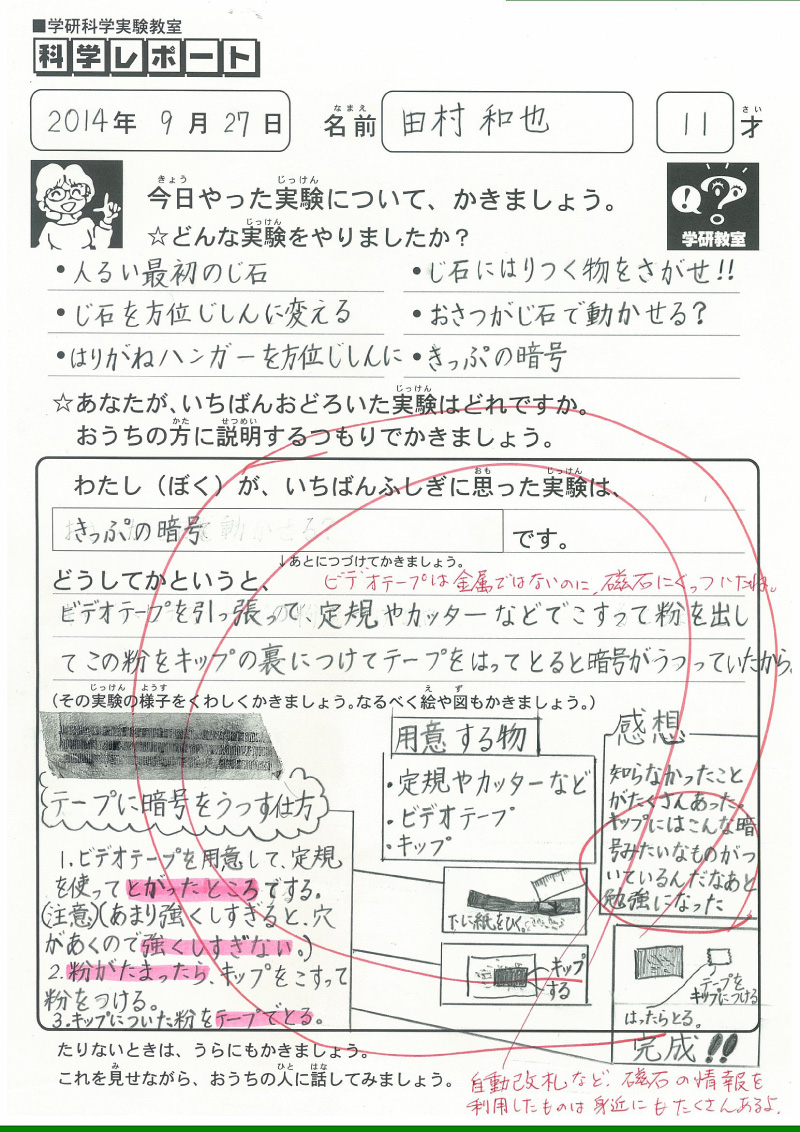 ■学研科学実験教室
科学レポート
2014年 9月 27日 名前 田村 和也 11才
今日やった実験について、かきましょう。
学研教室
☆どんな実験をやりましたか？
・人るい最初のじ石
・じ石にはりつく物をさがせ!!
・じ石を方位じしんに変える
・おさつがじ石で動かせる？
・はりがねハンガーを方位じしんに
・きっぷの暗号
☆あなたが、いちばんおどろいた実験はどれですか。
おうちの方に説明するつもりでかきましょう。
わたし（ぼく）が、いちばんふしぎに思った実験は、
きっぷの暗号 です。
↓あとにつづけてかきましょう。
どうしてかというと、
ビデオテープは金属ではないのに、磁石にくっついたね。
ビデオテープを引っ張って、定規やカッターなどでこすって粉を出し
てこの粉をキップの裏につけてテープをはってとると暗号がうつっていたから。
(その実験の様子をくわしくかきましょう。なるべく絵や図もかきましょう。)
テープに暗号をうつす仕方
1.ビデオテープを用意して、定規
を使ってとがったところでする。
(注意)(あまり強くしすぎると、穴
があくので強くしすぎない。)
2.粉がたまったら、キップをこすって
粉をつける。
3.キップについた粉をテープでとる。
用意する物
・定規やカッターなど
・ビデオテープ
・キップ
感想
知らなかったこと
がたくさんあった。
キップにはこんな暗
号みたいなものがつ
いているんだなあと
勉強になった
下に紙をひく。
キップ
する
テープを
キップにつける
はったらとる。
完成!!
たりないときは、うらにもかきましょう。
これを見せながら、おうちの人に話してみましょう。
自動改札など、磁石の情報を
利用したものは身近にもたくさんあるよ。